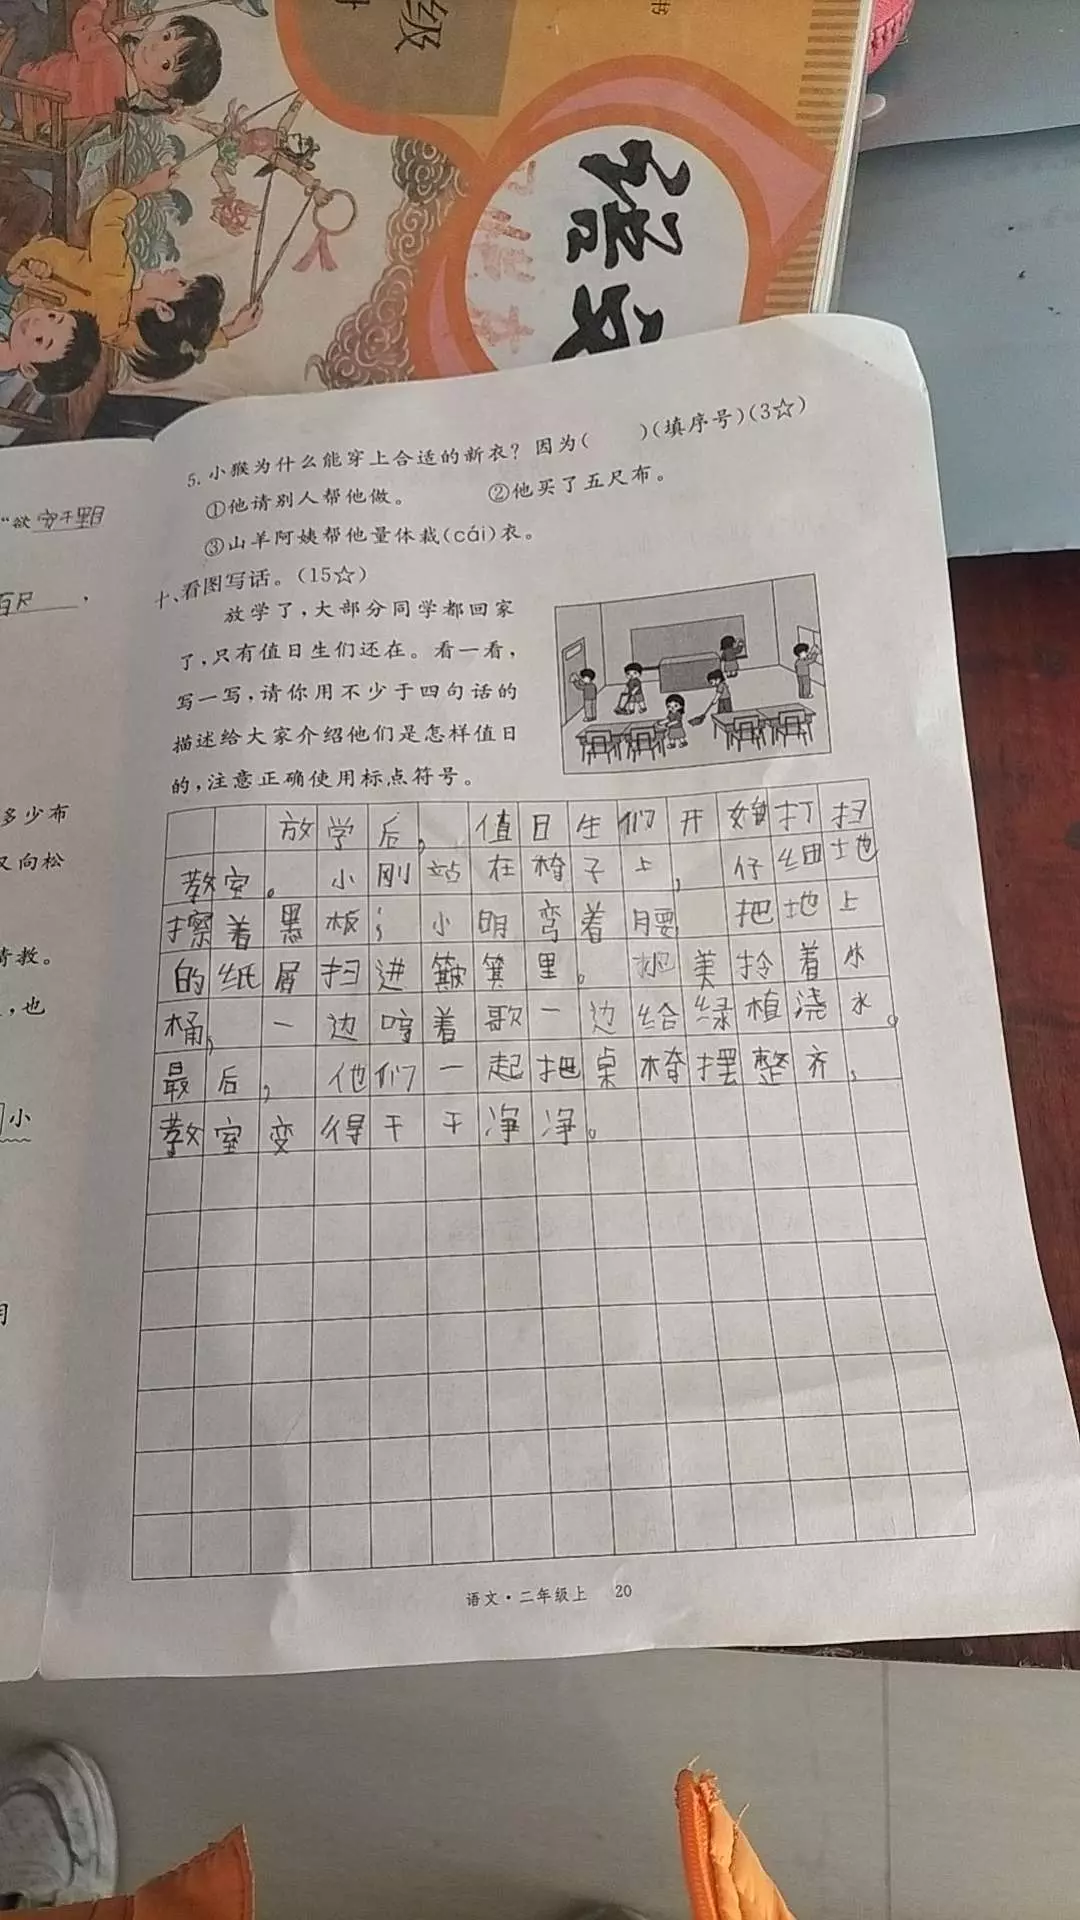 级
语文
5. 小猴为什么能穿上合适的新衣？因为(　　)(填序号)(3☆)
①他请别人帮他做。　②他买了五尺布。
③山羊阿姨帮他量体裁(cái)衣。
十、看图写话。(15☆)
放学了,大部分同学都回家
了,只有值日生们还在。看一看,
写一写,请你用不少于四句话的
描述给大家介绍他们是怎样值日
的,注意正确使用标点符号。
放学后，值日生们开始打扫
教室。小刚站在椅子上，仔细地
擦着黑板；小明弯着腰 把地上
的纸屑扫进簸箕里。 美拎着水
桶，一边哼着歌一边给绿植浇水。
最后，他们一起把桌椅摆整齐，
教室变得干干净净。
语文·二年级上　20
“欲穷千里目
百尺 ，
多少布
又向松
请教。
,也
小